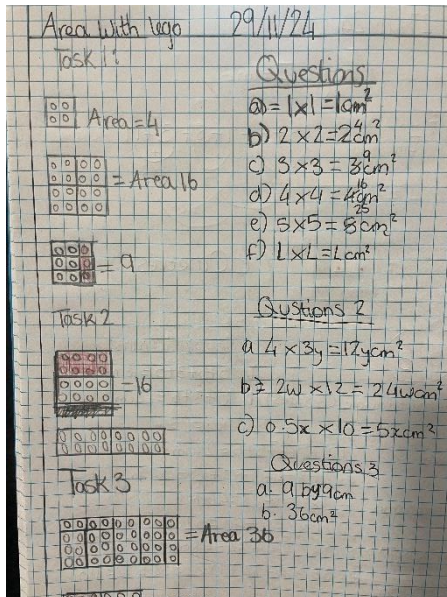 Area With lego 29/11/24
Task 1:
Area = 4
= Area 16
= 9
Task 2
= 16
Task 3
= Area 36
Questions
a) = 1x1 = 1cm²
b) 2 x 2 = 4cm²
c) 3 x 3 = 9cm²
d) 4 x 4 = 16cm²
e) 5 x 5 = 25cm²
f) L x L = L cm²
Qustions 2
a 4 x 3y = 12ycm²
b = 2w x 12 = 24wcm²
c) 0.5x x 10 = 5xcm²
Questions 3
a. 9 by 9cm
b. 36cm²